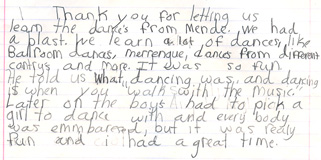 Thank you for letting us
learn the dances from Mende. We had
a plast. We learn a lot of dances, like
Ballroom dances, merrengue, dances from different
contrys and more. It was so fun
He told us What "dancing was, and dancing
is when you walk with the music."
Later on the boys had to pick a
girl to dance with and every body
was emmbaresed, but it was realy
fun and i had a great time.